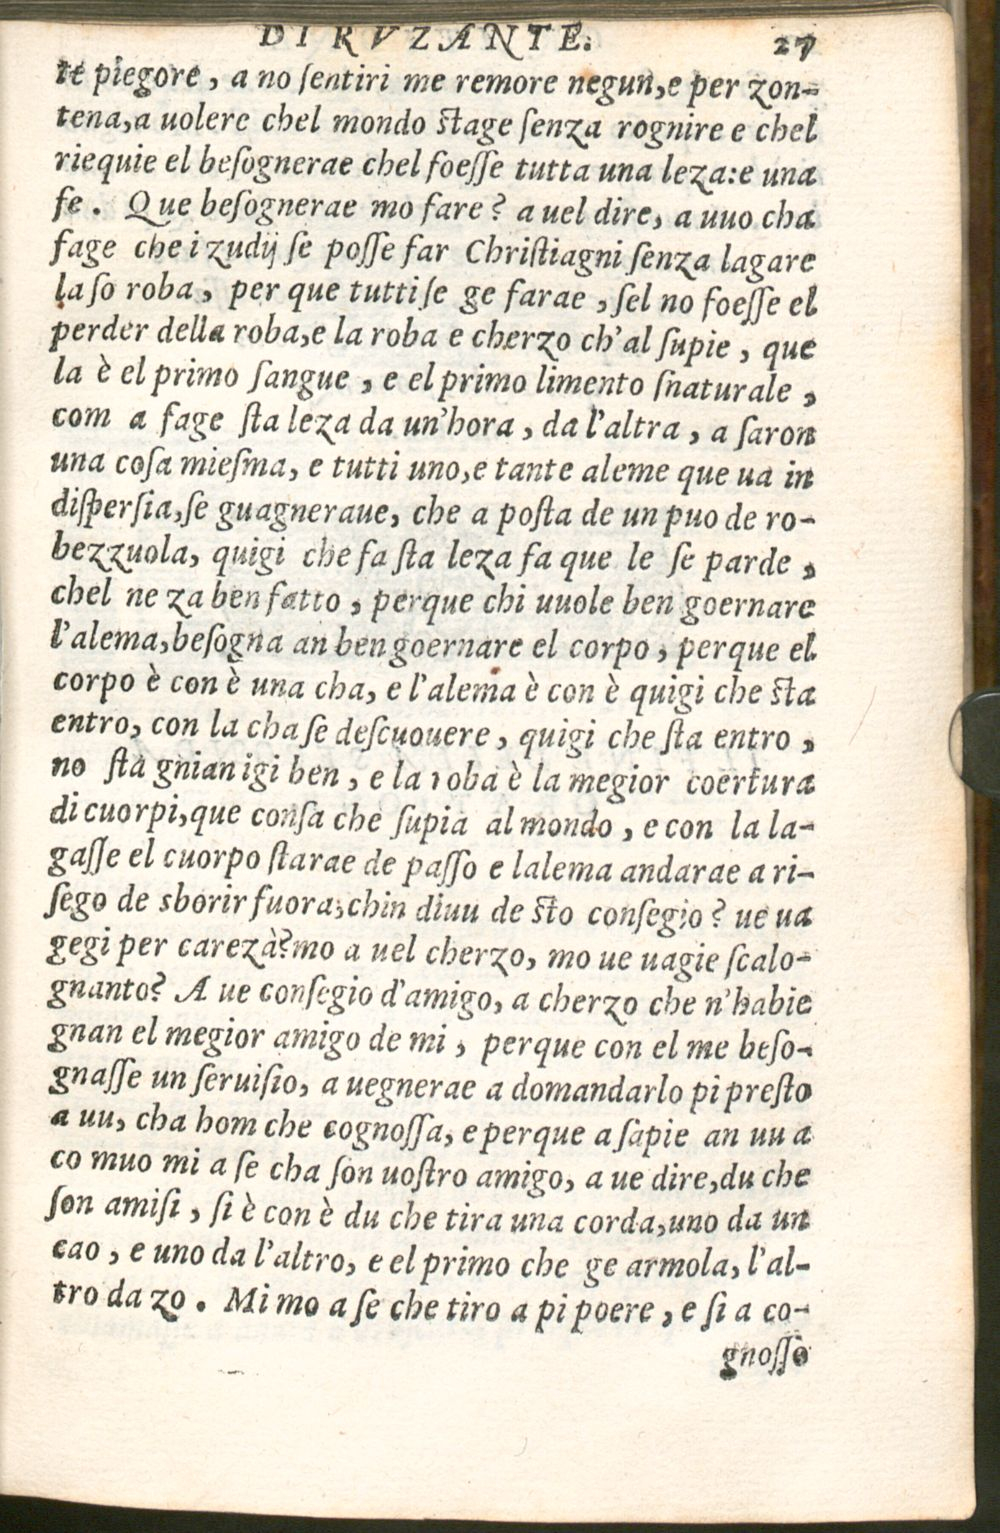 DI RVZANTE. 27
te piegore, a no ſentiri me remore negun, e per zon-
tena, a uolere chel mondo ſtage ſenza rognire e chel
riequie el beſognerae chel foeſſe tutta una leza: e una
fe. Que beſognerae mo fare? a uel dire, a uuo cha
fage che i zudij ſe poſſe far Chriſtiagni ſenza lagare
la ſo roba, per que tutti ſe ge farae, ſel no foeſſe el
perder della roba, e la roba e cherzo ch'al ſupie, que
la è el primo ſangue, e el primo limento ſnaturale,
com a fage ſta leza da un'hora, da l'altra, a ſaron
una coſa mieſma, e tutti uno, e tante aleme que ua in
diſperſia, ſe guagneraue, che a poſta de un puo de ro-
bezzuola, quigi che fa ſta leza fa que le ſe parde,
chel ne za ben fatto, perque chi uuole ben goernare
l'alema, beſogna an ben goernare el corpo, perque el
corpo è con è una cha, e l'alema è con è quigi che ſta
entro, con la cha ſe deſcuouere, quigi che ſta entro,
no ſta gnian igi ben, e la roba è la megior coertura
di cuorpi, que conſa che ſupia al mondo, e con la la-
gaſſe el cuorpo ſtarae de paſſo e lalema andarae a ri-
ſego de sborir fuora, chin diuu de ſto conſegio? ue ua
gegi per carezà? mo a uel cherzo, mo ue uagie ſcalo-
gnanto? A ue conſegio d'amigo, a cherzo che n'habie
gnan el megior amigo de mi, perque con el me beſo-
gnaſſe un ſeruiſio, a uegnerae a domandarlo pi preſto
a uu, cha hom che cognoſſa, e perque a ſapie an uu a
co muo mi a ſe cha ſon uoſtro amigo, a ue dire, du che
ſon amiſi, ſi è con è du che tira una corda, uno da un
cao, e uno da l'altro, e el primo che ge armola, l'al-
tro da zo. Mi mo a ſe che tiro a pi poere, e ſi a co-
gnoſſo